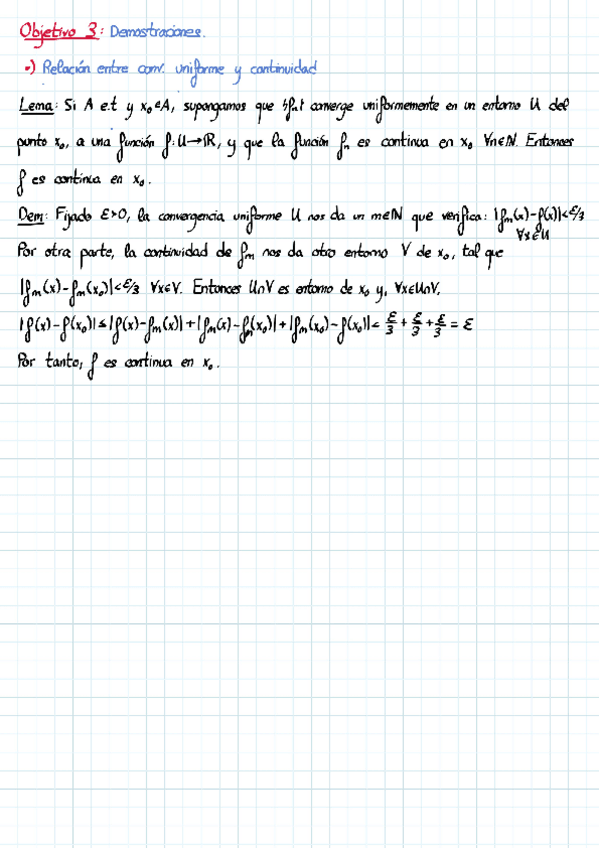 Objetivo 3: Demostraciones.
•) Relación entre conv. uniforme y continuidad
Lema: Si A e.t y x₀∈A, supongamos que {fₙ} converge uniformemente en un entorno U del
punto x₀, a una función f:U→ℝ, y que la función fₙ es continua en x₀ ∀n∈ℕ. Entonces
f es continua en x₀.
Dem: Fijado ε>0, la convergencia uniforme U nos da un m∈ℕ que verifica: |fₘ(x)-f(x)|<ε/3
∀x∈U
Por otra parte, la continuidad de fₘ nos da otro entorno V de x₀, tal que
|fₘ(x)-fₘ(x₀)|<ε/3 ∀x∈V. Entonces U∩V es entorno de x₀ y, ∀x∈U∩V,
|f(x)-f(x₀)|≤|f(x)-fₘ(x)|+|fₘ(x)-fₘ(x₀)|+|fₘ(x₀)-f(x₀)|< ε/3 + ε/3 + ε/3 = ε
Por tanto, f es continua en x₀.